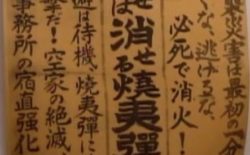 災害は最初の一分
くな、逃げるな、必死で消火!
消せる燒夷彈
避は待機、燒夷彈に
撃だ!空家の絶滅、
事務所の宿直強化